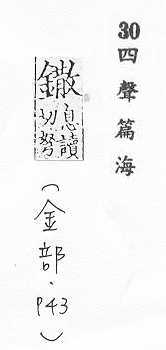 30四聲篇海
鏾
息讀
切努
(金部.P43)